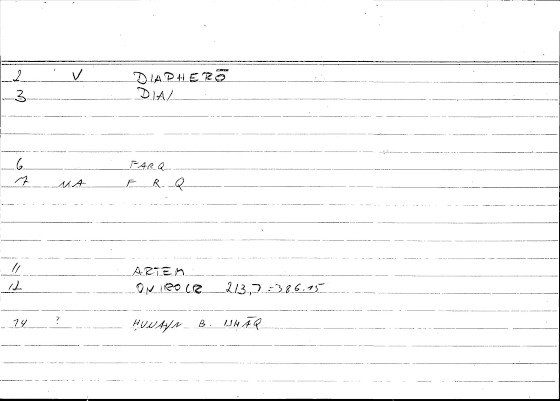 2 V DIAPHERŌ
3 DIA/
6 FARQ
7 MA F R Q
11 ARTEM
12 ONIROCR 213,7 = 386.15
14 ? HUNAYN B. ISḤĀQ